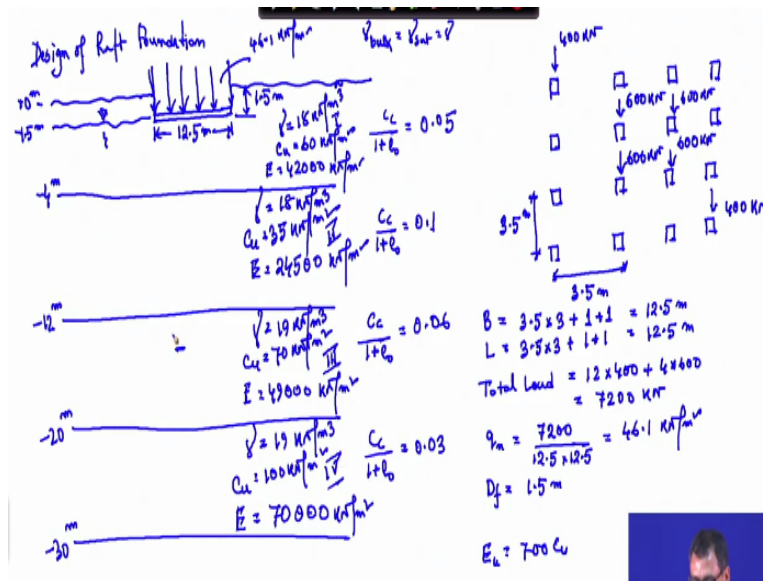 Design of Raft Foundation
46.1 kN/m²
γbulk = γsat = γ
±0 m
-1.5 m
1.5 m
12.5 m
γ = 18 kN/m³
Cu = 60 kN/m²
I
E = 42000 kN/m²
Cc/(1+e0) = 0.05
-4 m
γ = 18 kN/m³
Cu = 35 kN/m²
II
E = 24500 kN/m²
Cc/(1+e0) = 0.1
-12 m
γ = 19 kN/m³
Cu = 70 kN/m²
III
E = 49000 kN/m²
Cc/(1+e0) = 0.06
-20 m
γ = 19 kN/m³
Cu = 100 kN/m²
IV
E = 70000 kN/m²
Cc/(1+e0) = 0.03
-30 m
400 KN
600 KN 600 KN
600 KN 600 KN
400 KN
3.5 m
3.5 m
B = 3.5 x 3 + 1 + 1 = 12.5 m
L = 3.5 x 3 + 1 + 1 = 12.5 m
Total Load = 12 x 400 + 4 x 600
= 7200 KN
qn = 7200/(12.5 x 12.5) = 46.1 kN/m²
Df = 1.5 m
Eu = 700 Cu